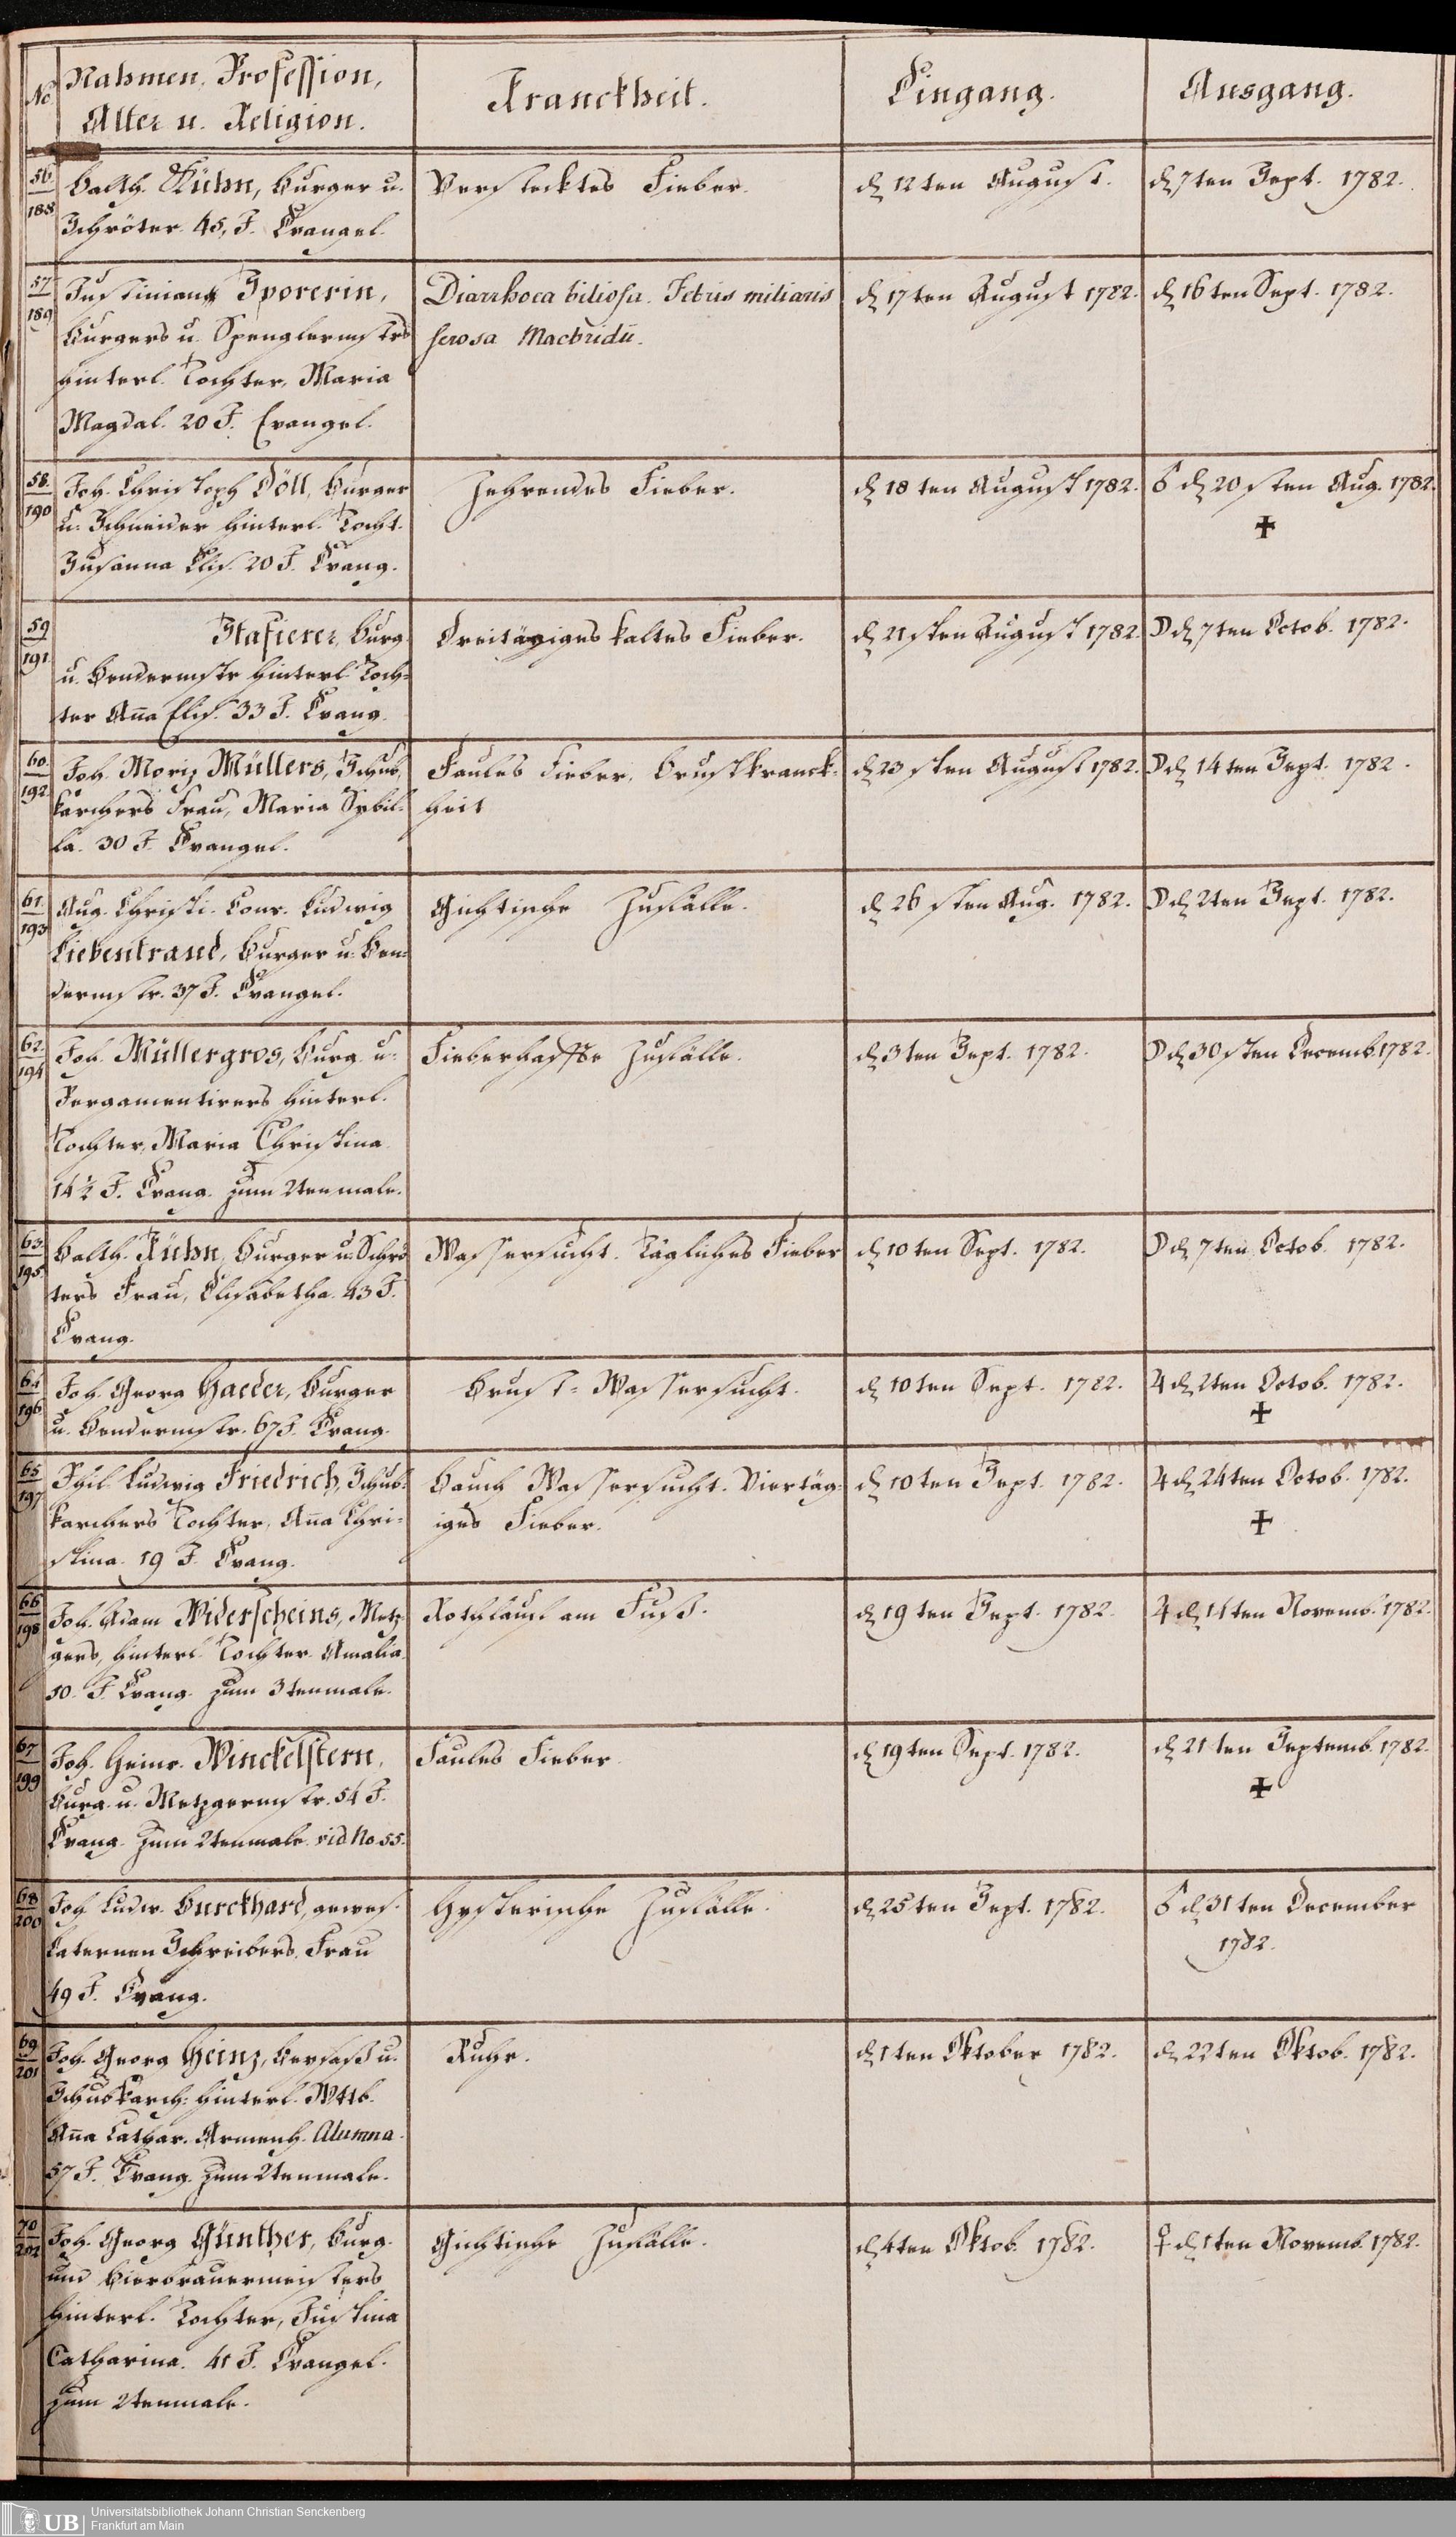 No. Nahmen, Profession,
Alter u. Religion.
Kranckheit.
Eingang.
Ausgang.
56.
188
Balth. Kühn, Burger u.
Schröter. 45, J. Evangel.
Verstecktes Fieber.
d 12ten August.
d 7ten Sept. 1782.
57
189
Justinians Sporerin,
Burgers u. Spenglermstrs
hinterl. Tochter, Maria
Magdal. 20 J. Evangel.
Diarrhoea biliosa. Febris miliaris
serosa Macbridii.
d 17ten August 1782.
d 16ten Sept. 1782.
58.
190
Joh. Christoph Döll, Burger
u. Schneider hinterl. Tocht.
Susanna Elis. 20 J. Evang.
Zehrendes Fieber.
d 18ten August 1782.
♂ d 20sten Aug. 1782.
✝
59
191
Stafierer, Burg.
u. Bendermstr hinterl Toch=
ter Aña Elis. 33 J. Evang.
Dreitägiges kaltes Fieber.
d 21sten August 1782.
☽ d 7ten Octob. 1782.
60.
192
Joh. Moriz Müllers, Schub,
karchers Frau, Maria Sybil=
la. 30 J. Evangel.
Faules Fieber. Brustkranck=
heit
d 23sten August 1782.
☽ d 14ten Sept. 1782.
61.
193
Aug. Christi. Conr. Ludwig
Liebentrand, Burger u. Ben=
dermstr. 37 J. Evangel.
Gichtische Zufälle.
d 26sten Aug. 1782.
☽ d 2ten Sept. 1782.
62.
194
Joh. Müllergros, Burg. u.
Pergamentirers hinterl.
Tochter, Maria Christina
14½ J. Evang. zum 2tenmale.
Fieberhaffte Zufälle.
d 3ten Sept. 1782.
☽ d 30sten Decemb. 1782.
63.
195.
Balth. Kühn, Burger u. Schrö
ters Frau, Elisabetha. 43 J.
Evang.
Wassersucht. Tägliches Fieber
d 10ten Sept. 1782.
☽ d 7ten Octob. 1782.
64
196
Joh. Georg Haeder, Burger
u. Bendermstr. 67 J. Evang.
Brust=Wassersucht.
d 10ten Sept. 1782.
♃ d 2ten Octob. 1782.
✝
65
197
Phil. Ludwig Friedrich, Schub=
karchers Tochter, Aña Chri=
stina. 19 J. Evang.
Bauch Wassersucht. Viertäg=
iges Fieber.
d 10ten Sept. 1782.
♃ d 24ten Octob. 1782.
✝
66
198
Joh. Adam Widerscheins, Metz
gers, hinterl. Tochter Amalia
50. J. Evang. zum 3tenmale.
Rothlauf am Fuß.
d 19ten Sept. 1782.
♃ d 14ten Novemb. 1782.
67
199
Joh. Heinr. Winckelstern,
Burg. u. Metzgermstr. 54 J.
Evang. Zum 2tenmale. vid No. 55.
Faules Fieber
d 19ten Sept. 1782.
d 21ten Septemb. 1782.
✝
68
200
Joh. Ludw. Burckhard, gewes.
Laternen Schreibers, Frau
49 J. Evang.
Hysterische Zufälle.
d 25ten Sept. 1782.
♂ d 31ten December
1782.
69
201
Joh. Georg Heinz, Beysaß u.
Schubkarch: hinterl. Wttb.
Aña Cathar. Armenh. Alumna.
57 J. Evang. zum 2tenmale.
Ruhr.
d 1ten Oktober 1782.
d 22ten Oktob. 1782.
70
202
Joh. Georg Günther, Burg.
und Bierbrauermeisters
hinterl. Tochter, Justina
Catharina. 41 J. Evangel.
zum 2tenmale.
Gichtische Zufälle.
d 4ten Oktob. 1782.
♀ d 1ten Novemb. 1782.
UB
Universitätsbibliothek Johann Christian Senckenberg
Frankfurt am Main